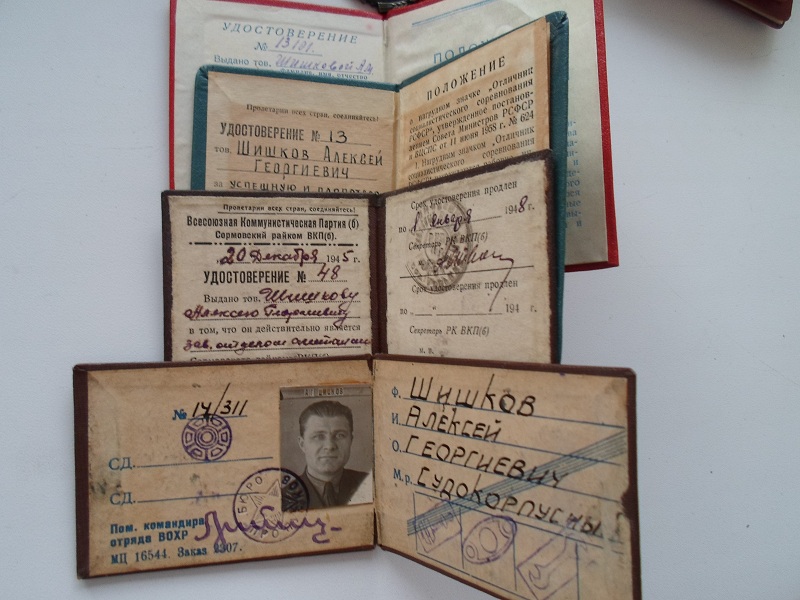 УДОСТОВЕРЕНИЕ
№ 13101.
Выдано тов. Шишковой
ПОЛОЖ
Пролетарии всех стран, соединяйтесь!
УДОСТОВЕРЕНИЕ № 13
тов. ШИШКОВ АЛЕКСЕЙ
ГЕОРГИЕВИЧ
за УСПЕШНУЮ И
ПОЛОЖЕНИЕ
о нагрудном значке „Отличник
социалистического соревнования
РСФСР“, утвержденное постанов-
лением Совета Министров РСФСР
и ВЦСПС от 11 июня 1958 г. № 624
1. Нагрудным значком „Отличник
социалистического соревнования
Пролетарии всех стран, соединяйтесь!
Всесоюзная Коммунистическая Партия (б)
Сормовский райком ВКП(б).
20 декабря 1945 г.
УДОСТОВЕРЕНИЕ № 48
Выдано тов. Шишкову
Алексею Георгиевичу
в том, что он действительно является
зав. отделом
Сормовского райкома ВКП(б)
Срок удостоверения продлен
по 1 января 1948 г.
Секретарь РК ВКП(б)
Срок удостоверения продлен
по 194 г.
Секретарь РК ВКП(б)
№ 14/311
СД.
СД.
Пом. командира
отряда ВОХР
МЦ 16544. Заказ 2307.
БЮРО
Ф. ШИШКОВ
И. АЛЕКСЕЙ
О. ГЕОРГИЕВИЧ
М.р. СУДОКОРПУСНЫЙ